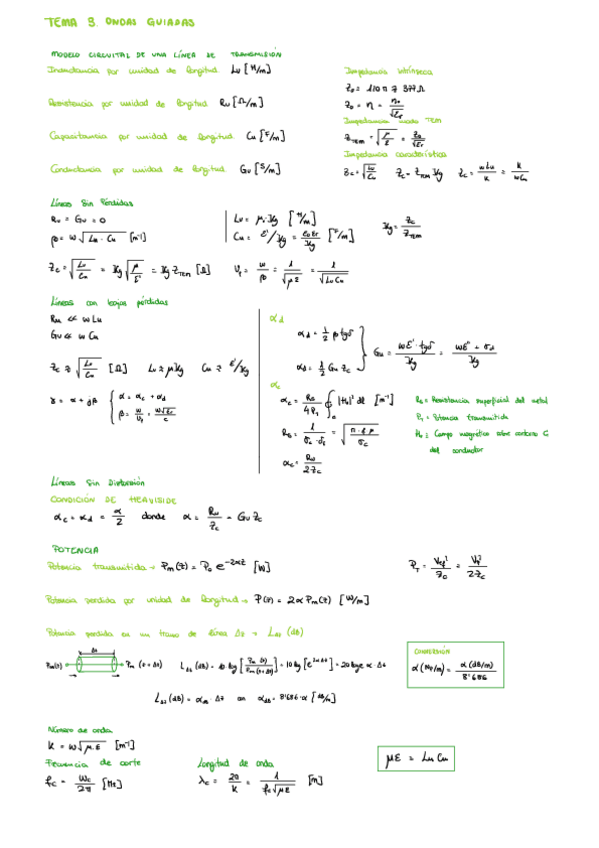 TEMA 3. ONDAS GUIADAS
MODELO CIRCUITAL DE UNA LÍNEA DE TRANSMISIÓN
Inductancia por unidad de longitud Lu [H/m]
Resistencia por unidad de longitud Ru [Ω/m]
Capacitancia por unidad de longitud Cu [F/m]
Conductancia por unidad de longitud Gu [S/m]
Impedancia intrínseca
Z₀ = 120 π ≈ 377 Ω
Z₀ = η = η₀/√εr
Impedancia modo TEM
Z_TEM = √(μ/ε) = Z₀/√εr
Impedancia característica
Zc = √(Lu/Cu) Zc = Z_TEM Kg Zc = wLu/K = K/wCu
Líneas Sin Pérdidas
Ru = Gu = 0
β = w√(Lu · Cu) [m⁻¹]
Lu = μ · Kg [H/m]
Cu = ε'/Kg = ε₀εr/Kg [F/m]
Kg = Zc/Z_TEM
Zc = √(Lu/Cu) = Kg √(μ/ε') = Kg Z_TEM [Ω] Vf = w/β = 1/√(με) = 1/√(Lu Cu)
Líneas con bajas pérdidas
Ru << wLu
Gu << wCu
Zc ≈ √(Lu/Cu) [Ω] Lu ≈ μKg Cu ≈ ε'/Kg
γ = α + jβ { α = αc + αd
β = w/Vf = w√εr/c
αd
αd = 1/2 β tgδ
αd = 1/2 Gu Zc
Gu = wε' · tgδ/Kg = wε'' + σd/Kg
αc
αc = Rs/4P_T ∮ |H₀|² dl [m⁻¹]
Rs = 1/σc · δs = √(π · f · μ/σc)
αc = Ru/2Zc
Rs = Resistencia superficial del metal
P_T = Potencia transmitida
H₀ = Campo magnético sobre contorno C
del conductor
Líneas Sin Distorsión
CONDICIÓN DE HEAVISIDE
αc = αd = α/2 donde α = Ru/Zc = Gu Zc
POTENCIA
Potencia transmitida → Pm(z) = P₀ e^(-2αz) [W]
Potencia perdida por unidad de longitud → P(z) = 2αPm(z) [W/m]
Potencia perdida en un tramo de línea Δz → L_Δz (dB)
Δz
Pm(z) Pm (z + Δz)
L_Δz (dB) = 10 log [Pm (z)/Pm (z+Δz)] = 10 log [e^(2αΔz)] = 20 log e α · Δz
L_Δz (dB) = α_dB · Δz con α_dB = 8'686 · α [dB/m]
CONVERSIÓN
α (Np/m) = α (dB/m)/8'686
Número de onda
K = w√(μ · ε) [m⁻¹]
Frecuencia de corte
fc = wc/2π [Hz]
Longitud de onda
λc = 2π/K = 1/(fc√(με)) [m]
με = Lu Cu